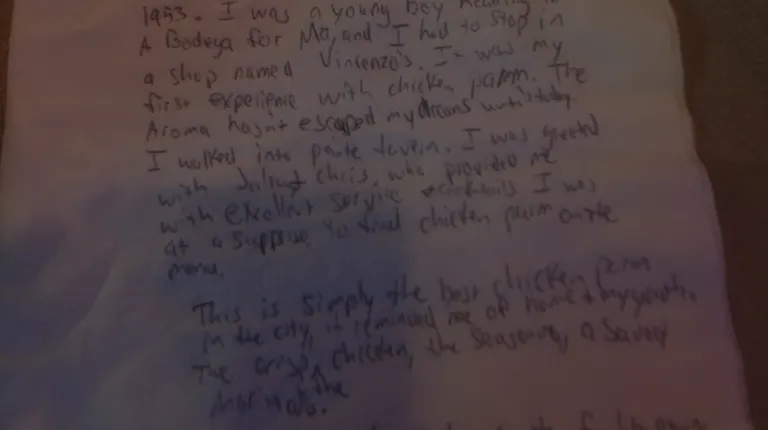 1953. I was a young boy heading to
A Bodega for Ma, and I had to stop in
a shop named Vincenzo's. It was my
first experience with chicken parm. The
Aroma hasn't escaped my dreams until today.
I walked into tavern. I was greeted
with Chris, who provided me
with excellent service cocktails I was
at a suppise to find chicken parm on the
menu.
This is simply the best chicken parm
in the city, it reminded me of home + my youth.
The crisp chicken, the seasoning, a savory
the